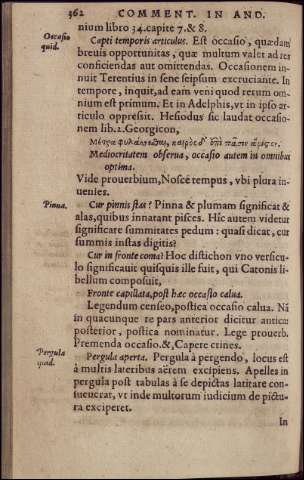 362 COMMENT. IN AND.
nium libro 34. capite 7. & 8.
Occasio quid.
Capti temporis articulus. Est occasio, quædam
breuis opportunitas, quæ multum valet ad res
conficiendas aut omittendas. Occasionem in-
nuit Terentius in sene seipsum excruciante. In
tempore, inquit, ad eam veni quod rerum om-
nium est primum. Et in Adelphis, vt in ipso ar-
ticulo oppressit. Hesiodus sic laudat occasio-
nem lib. 2. Georgicon,
Mediocritatem obserua, occasio autem in omnibus
optima.
Vide prouerbium, Nosce tempus, vbi plura in-
uenies.
Pinna.
Cur pinnis stas? Pinna & plumam significat &
alas, quibus innatant pisces. Hic autem videtur
significare summitates pedum: quasi dicat, cur
summis instas digitis?
Cur in fronte coma? Hoc distichon vno versicu-
lo significauit quisquis ille fuit, qui Catonis li-
bellum composuit,
Fronte capillata, post hæc occasio calua.
Legendum censeo, postica occasio calua. Nã
in quacunque re pars anterior dicitur antica:
posterior, postica nominatur. Lege prouerb.
Premenda occasio. &, Capere crines.
Pergula quid.
Pergula aperta. Pergula à pergendo, locus est
à multis lateribus aërem excipiens. Apelles in
pergula post tabulas à se depictas latitare con-
sueuerat, vt inde multorum iudicium de pictu-
ra exciperet.
In